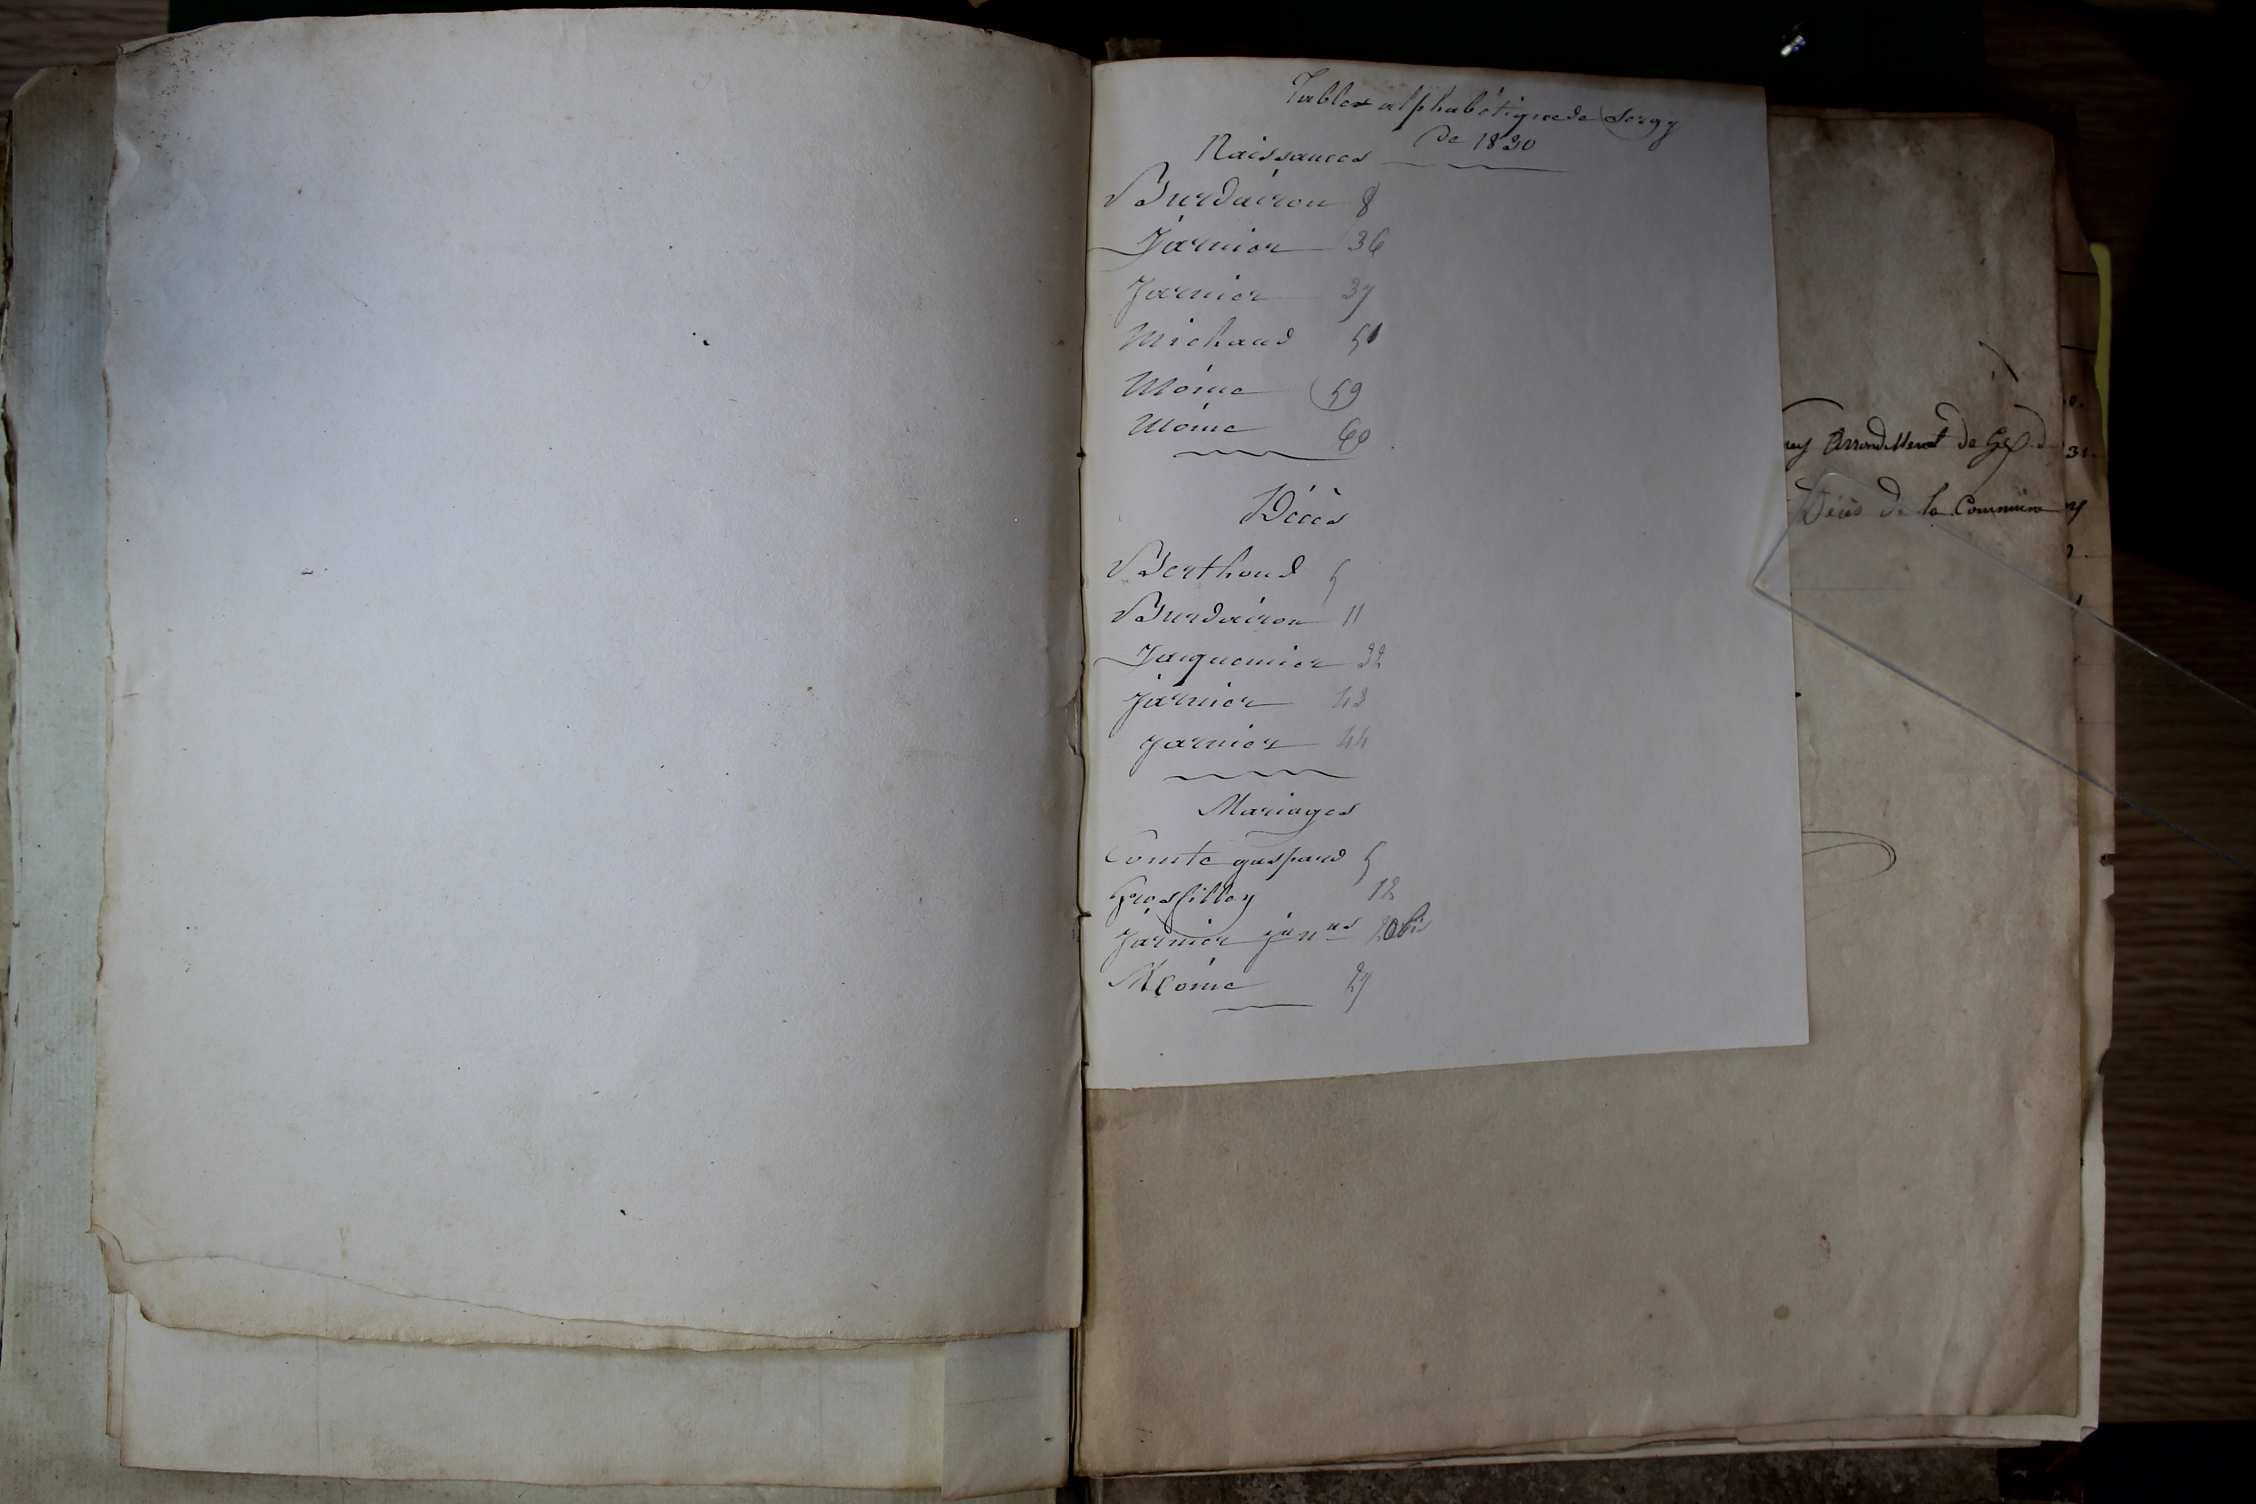 Tables alphabétique de Sergy
de 1830
Naissances
Burdairon 8
Jarnier 36
Jarnier 37
Michaud 51
Moine 59
Moine 60
Décès
Berthoud 5
Burdairon 11
Jacquemier 32
Jarnier 43
Jarnier 44
Mariages
Comte gaspard 5
Grosfilley 12
Jarnier 20 bis
Moine 27
Arrondissement de Gex
Décès de la Commune